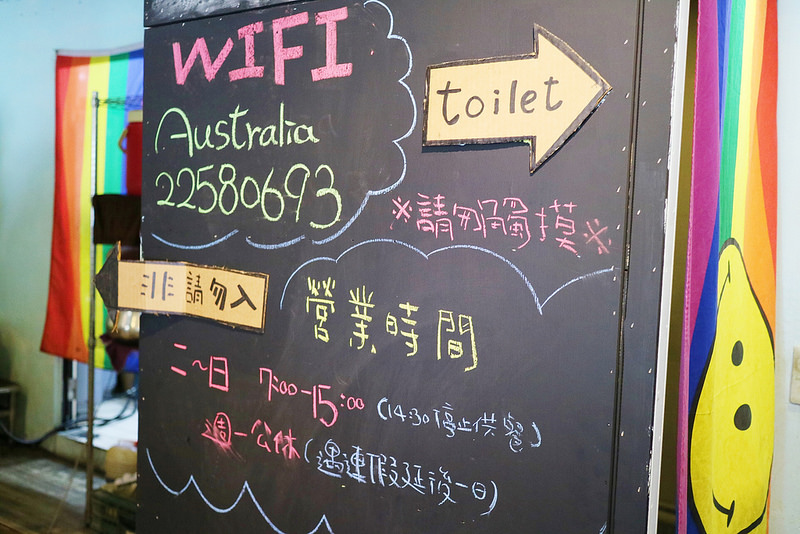 WIFI
Australia
22580693
toilet
※請勿觸摸※
非請勿入
營業時間
二~日 7:00-15:00 (14:30停止供餐)
週一公休(遇連假延後一日)